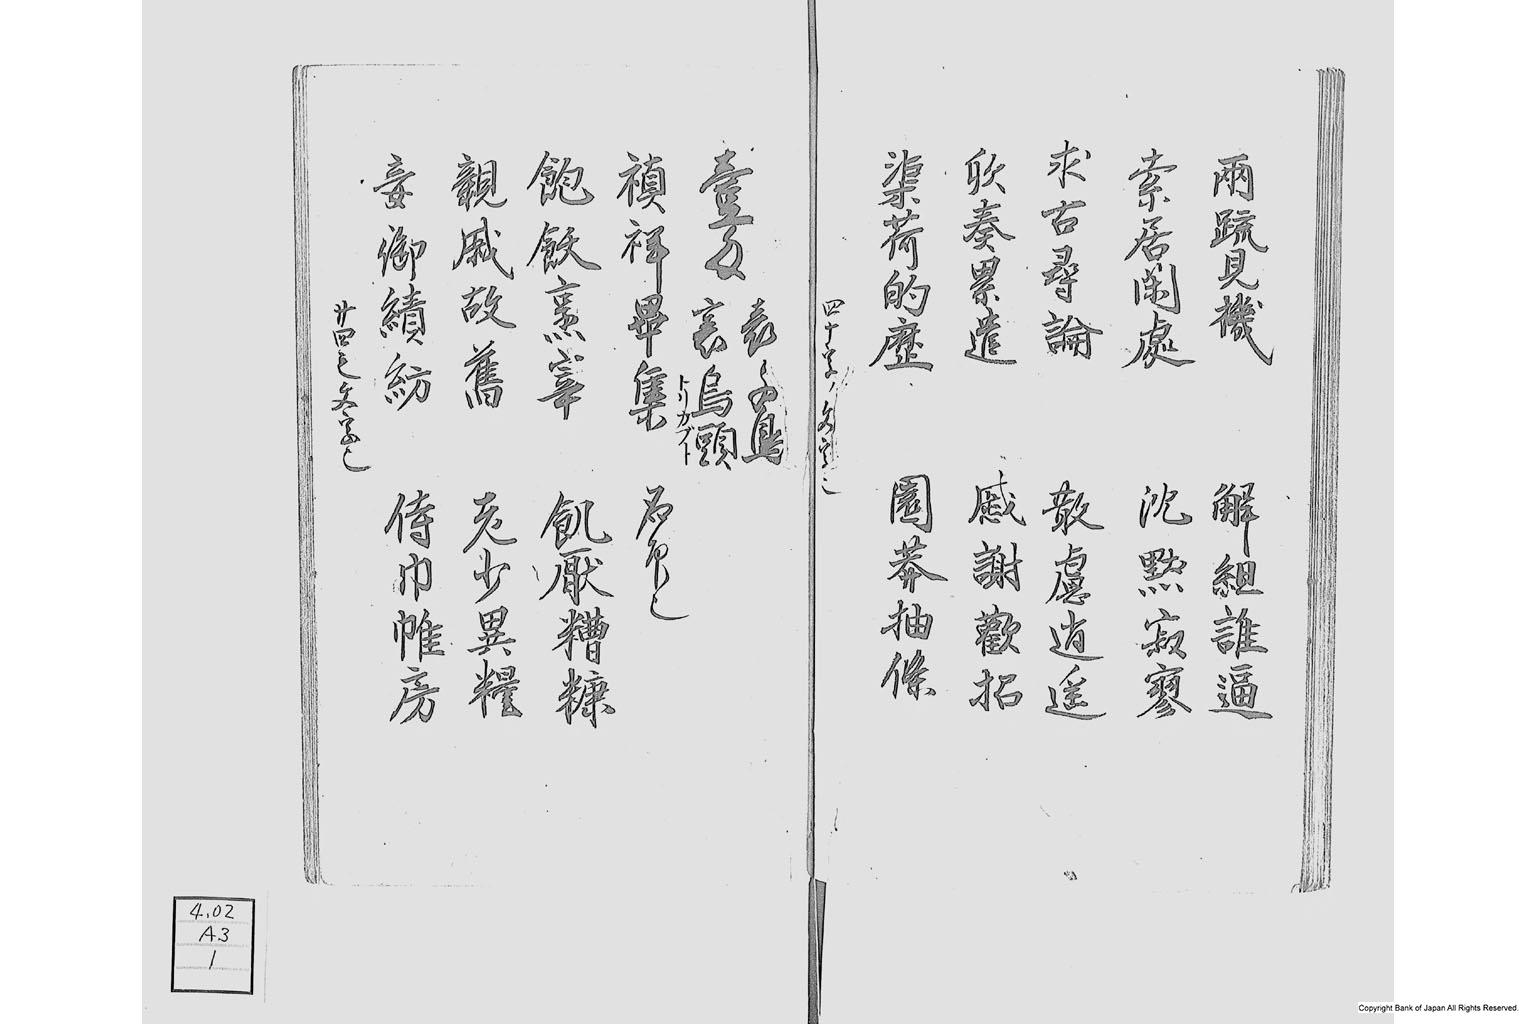 兩疏見機　解組誰逼
索居閑處　沈默寂寥
求古尋論　散慮逍遥
欣奏累遣　慼謝歡招
渠荷的歴　園莽抽條
四十字ノ文字也
壹匁
表
裏烏頭
トリカブト
禎祥畢集
飽飫烹宰　飢厭糟糠
親戚故舊　老少異糧
妾御績紡　侍巾帷房
廿四之文字也
4.02
A3
1
Copyright Bank of Japan All Rights Reserved.